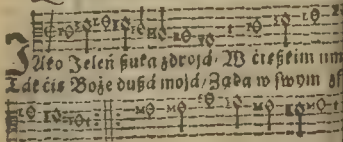 JAko Jeleń ßuka zdroją/ W ćiężkim um
Tak ćię Boże dußá mojá/ Żąda w swym